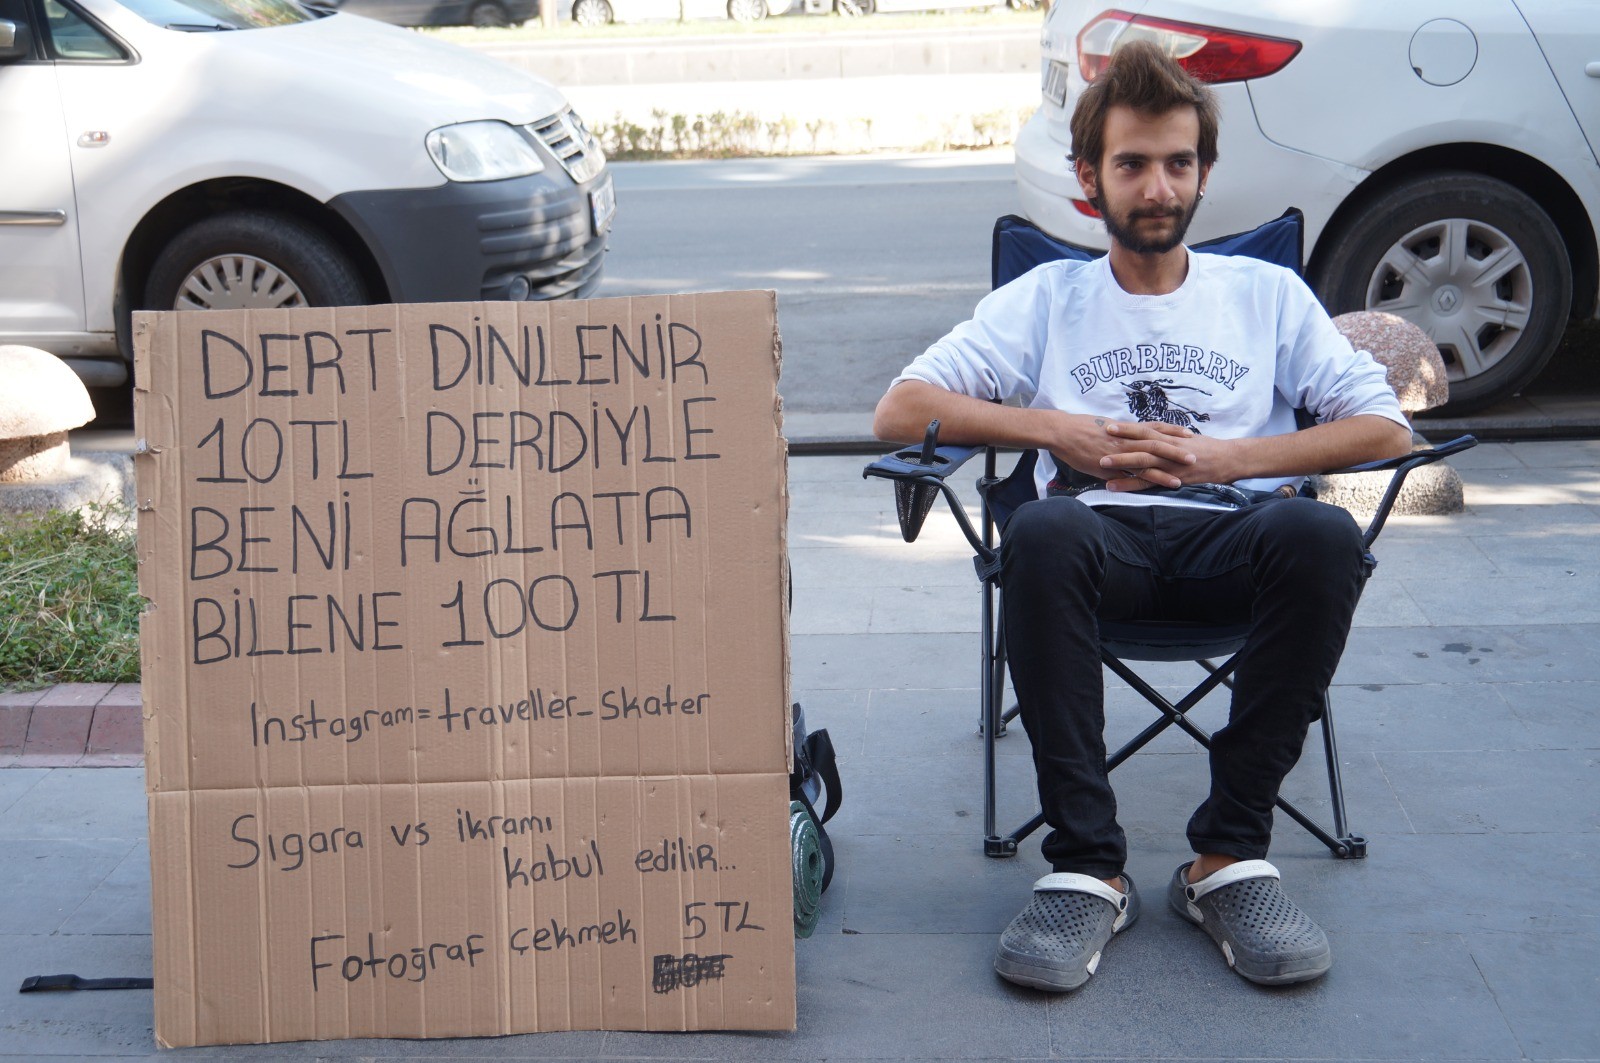 DERT DİNLENİR
10TL DERDİYLE
BENİ AĞLATA
BİLENE 100 TL
Instagram=traveller_skater
Sıgara vs ikramı
kabul edilir...
Fotoğraf çekmek 5 TL
BURBERRY